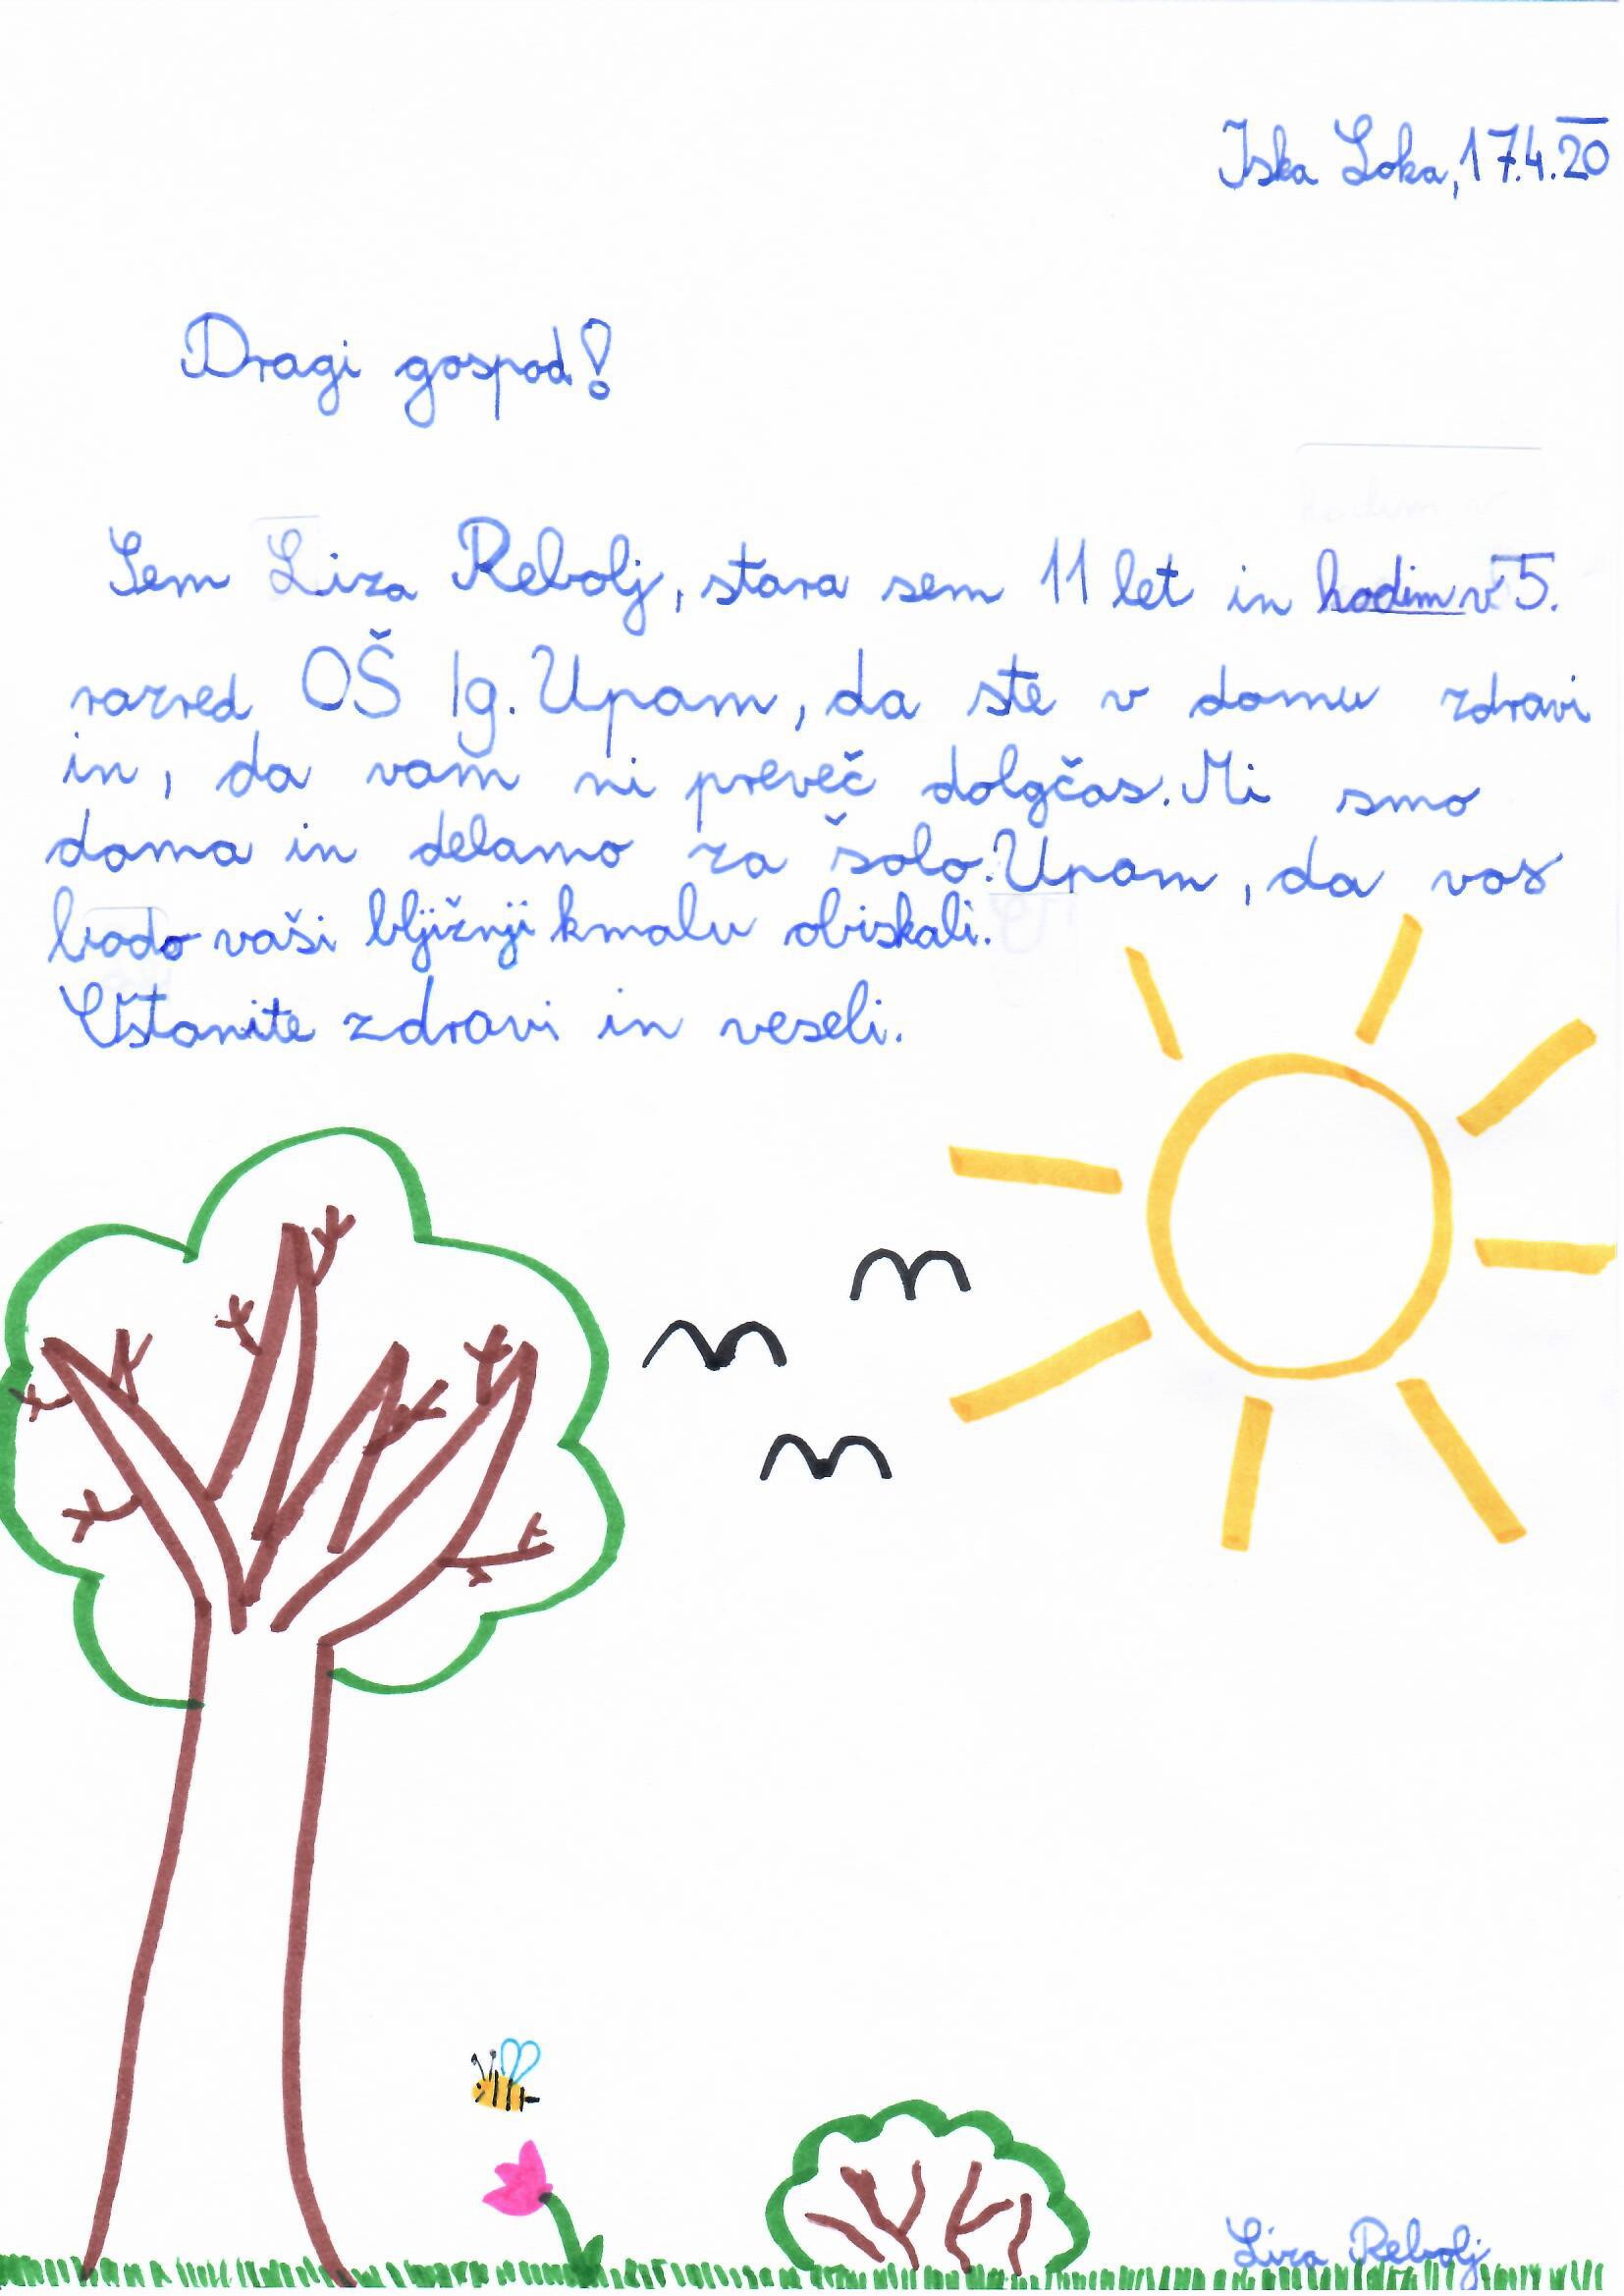 Iska Loka, 17.4.20
Dragi gospod!
Sem Liza Rebolj, stara sem 11 let in hodim v 5.
razred OŠ Ig. Upam, da ste v domu zdravi
in, da vam ni preveč dolgčas. Mi smo
doma in delamo za šolo. Upam, da vas
bodo vaši bljižnji kmalu obiskali.
Ostanite zdravi in veseli.
Liza Rebolj